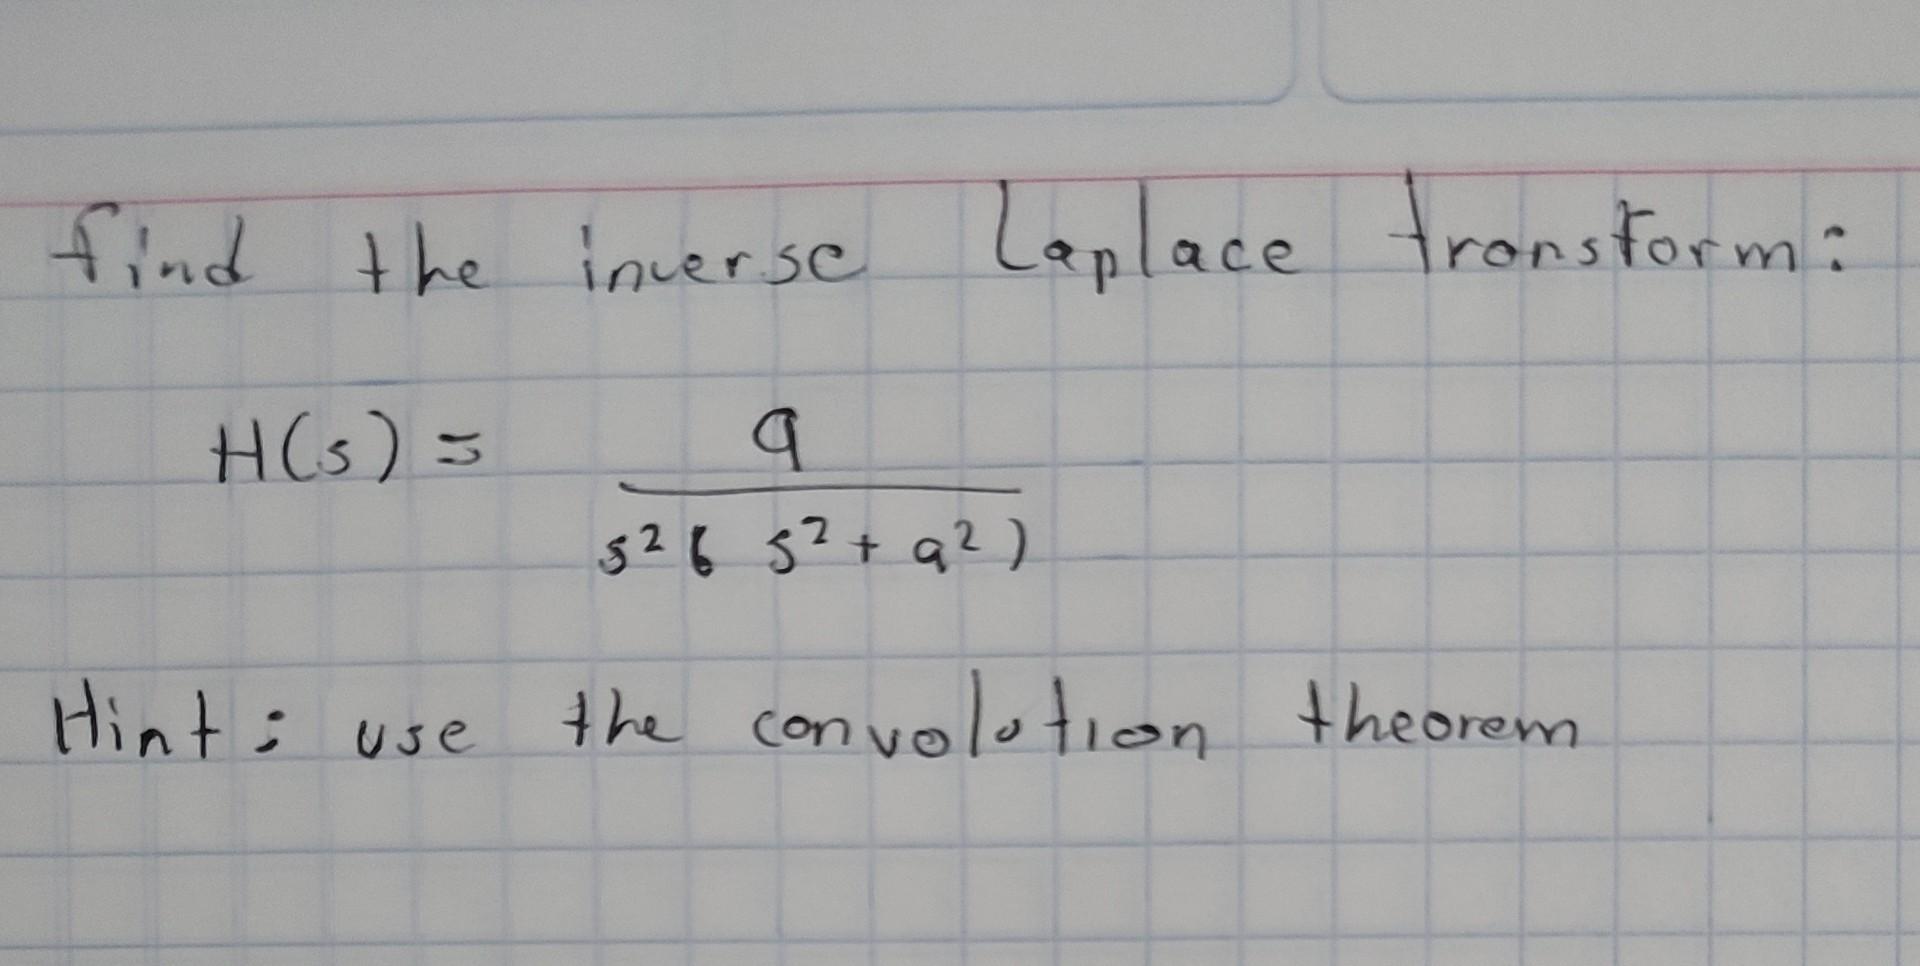 find the inverse Laplace transform:
H(s) = a / s² ( s² + a² )
Hint: use the convolution theorem